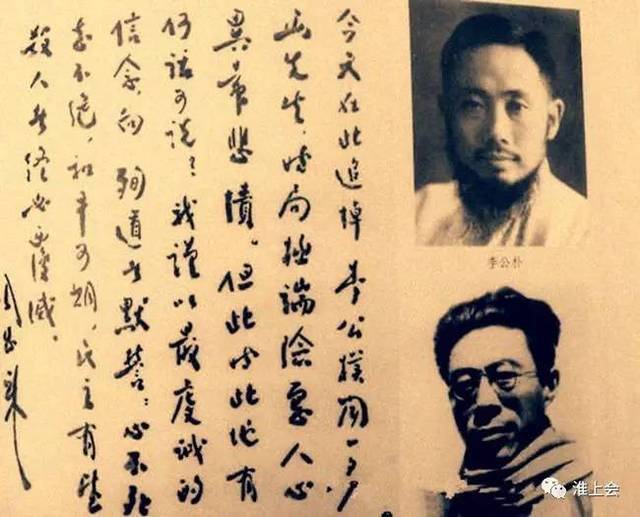 今天在此追悼李公樸闻一多
两先生,时局極端險惡人心
異常悲憤。但此时此地有
何话可说?我谨以最虔诚的
信念,向殉道者默誓:心不死
志不绝,和平可期,民主有望
殺人者终必覆滅。
周恩来
李公朴
淮上会